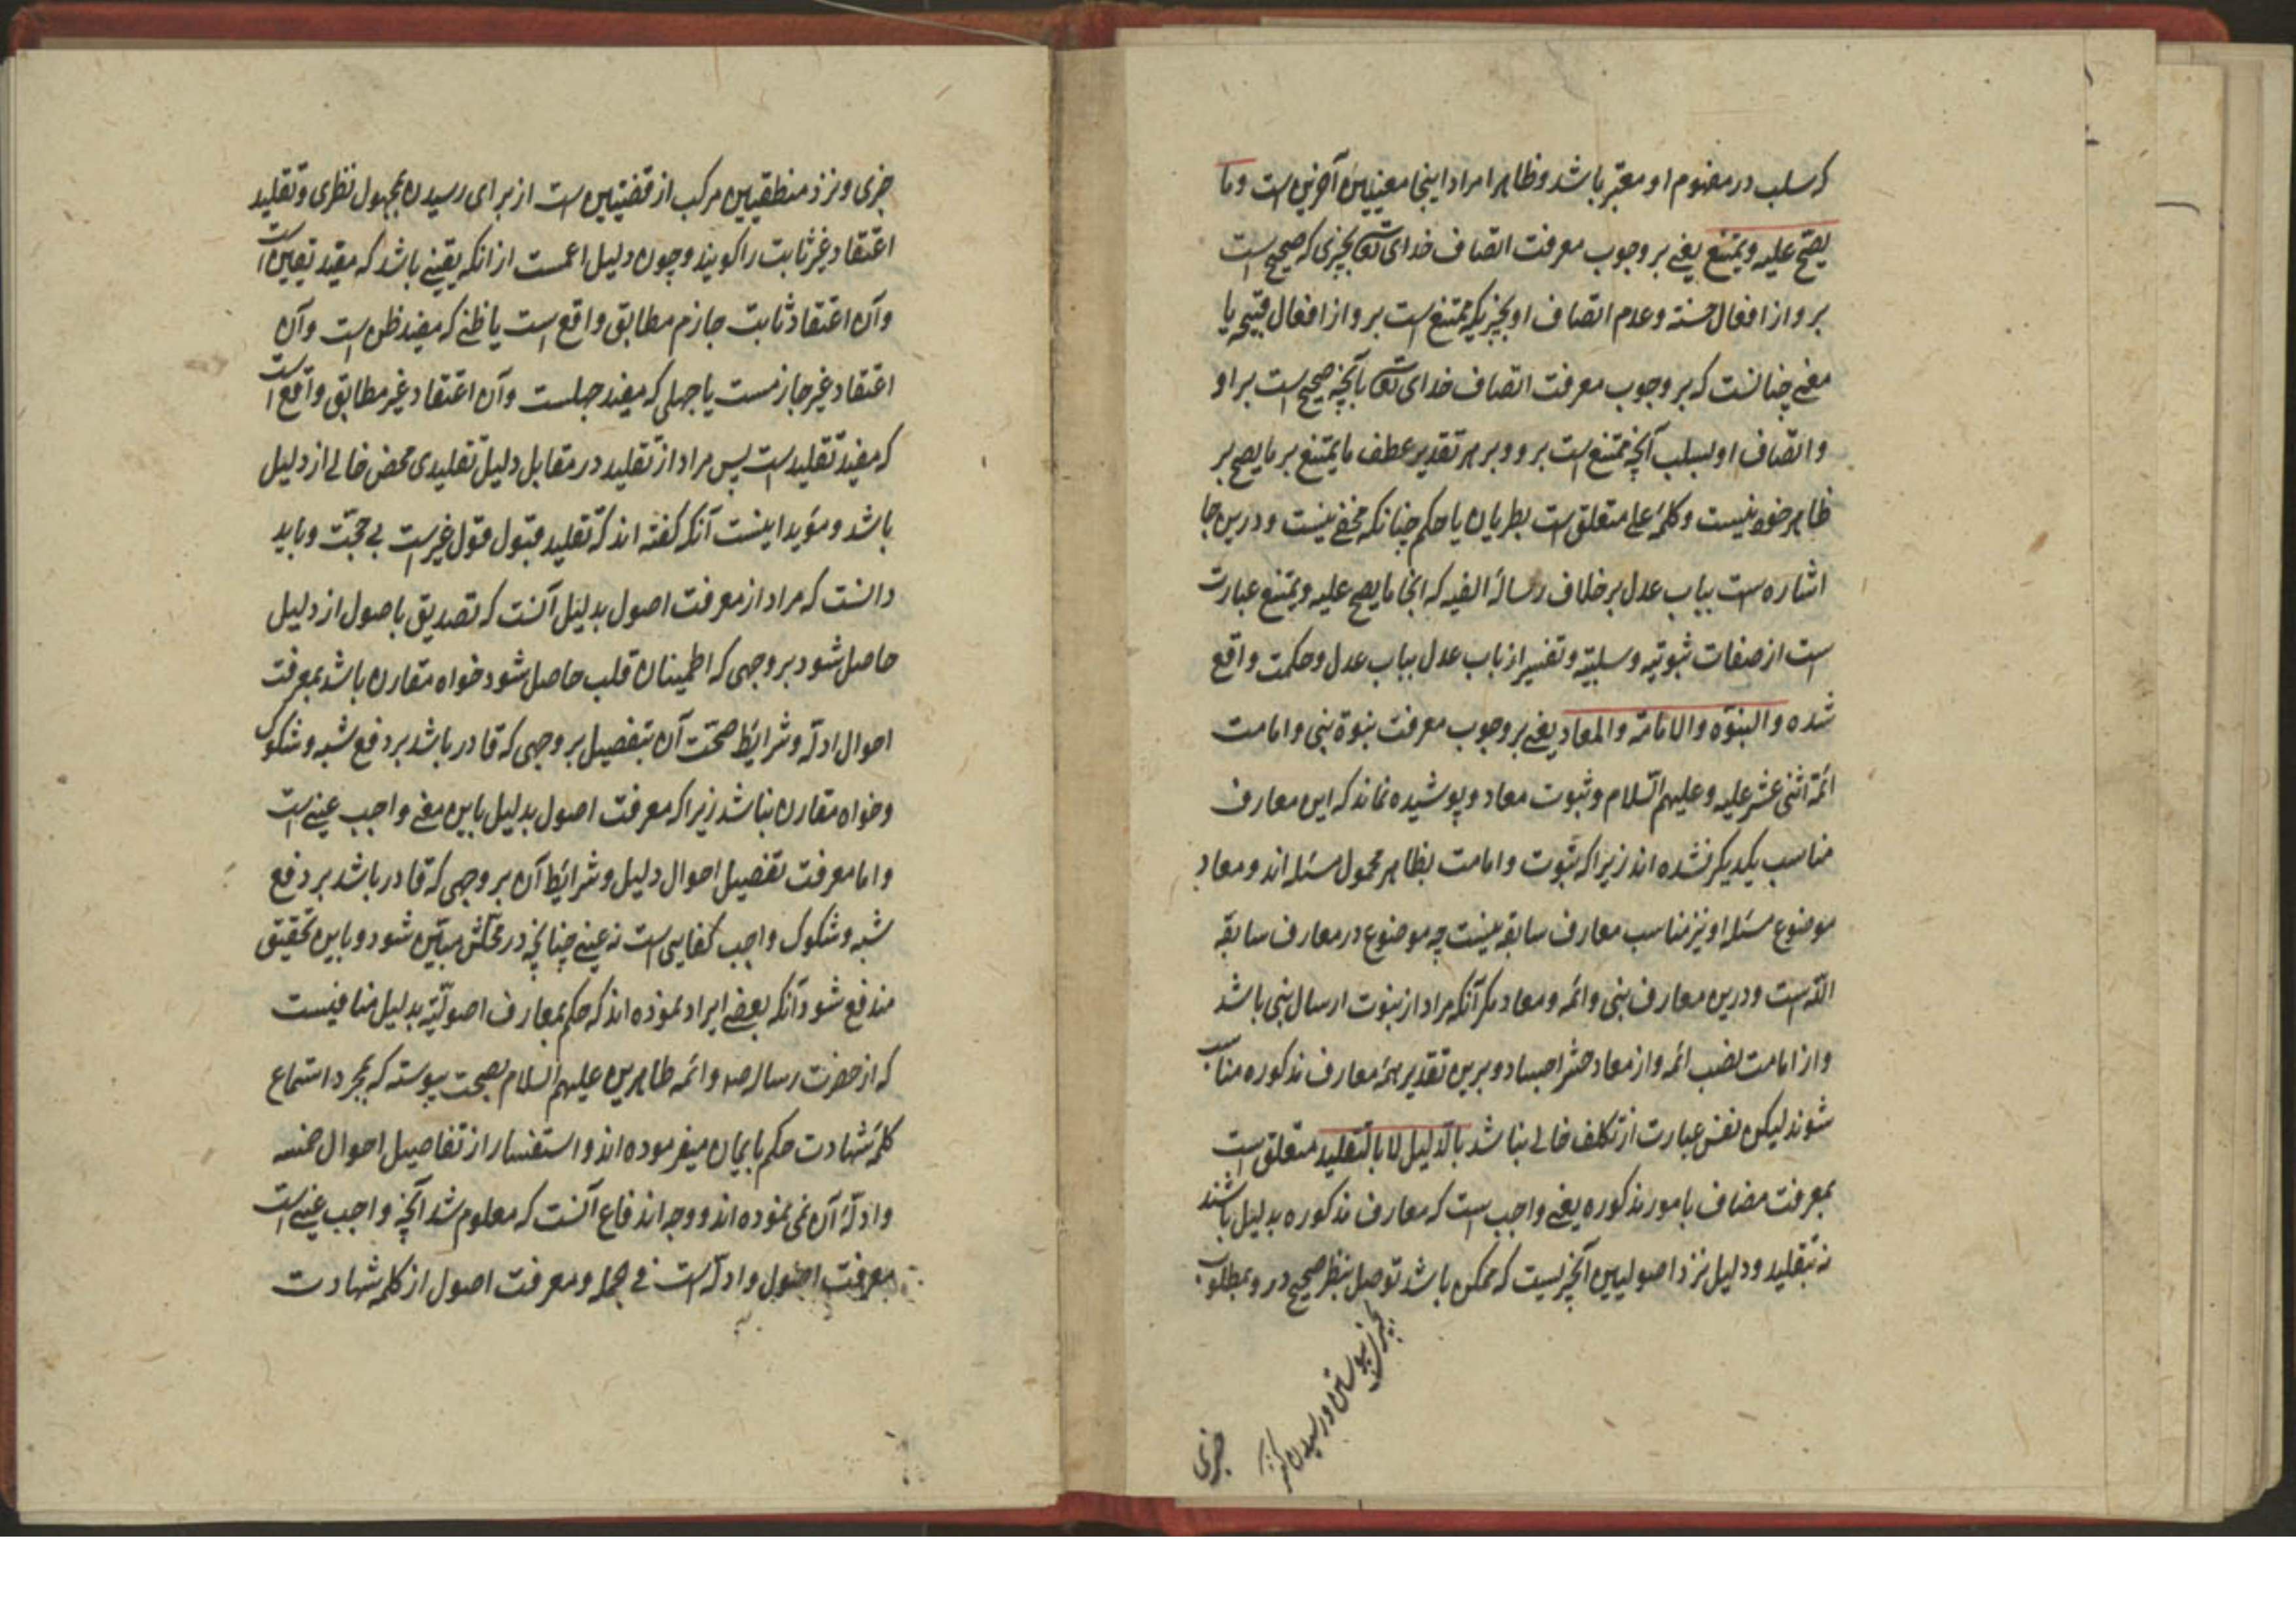 که سلب در مفهوم او معتبر باشد و ظاهرا مراد اینجا معنیین آخرین است وما
یصح علیه ویمتنع یعنی بر وجوب معرفت اتصاف خدای تعالی بچیزی که صحیح است
برو از افعال حسنه و عدم اتصاف او بچیزیکه ممتنع است برو از افعال قبیحه یا
معنی چنانست که بر وجوب معرفت اتصاف خدای تعالی بآنچه صحیح است بر او
و اتصاف او بسلب آنچه ممتنع است برو و بر هر تقدیر عطف ما یمتنع بر ما یصح بر
ظاهر خود نیست و کلمهٔ علی متعلق است بطریان یا حکم چنانکه مخفی نیست و درین جا
اشاره است بباب عدل بر خلاف رسالهٔ الفیه که انجا ما یصح علیه ویمتنع عبارت
است از صفات ثبوتیه و سلبیّه و تفسیر از باب عدل بباب عدل و حکمت واقع
شده والنبوّه والامامة والمعاد یعنی بر وجوب معرفت نبوة نبی و امامت
ائمّهٔ اثنی عشر علیه وعلیهم السّلام و ثبوت معاد و پوشیده نماند که این معارف
مناسب یکدیکر نشده اند زیرا که نبوت و امامت بظاهر محمول مسئله اند و معاد
موضوع مسئله او نیز مناسب معارف سابقه نیست چه موضوع در معارف سابقه
اللّه است و درین معارف نبی و ائمه و معاد مکر آنکه مراد از نبوت ارسال نبی باشد
و از امامت نصب ائمه و از معاد حشر اجساد و برین تقدیر همهٔ معارف مذکوره مناسب
شوند لیکن نفس عبارت از تکلف خالی نباشد بالدّلیل لا بالتّقلید متعلق است
بمعرفت مضاف بامور مذکوره یعنی واجب است که معارف مذکوره بدلیل باشند
نه بتقلید و دلیل نزد اصولیین آنچیزیست که ممکن باشد توصل بنظر صحیح در و بمطلوب
پیوستن و رسیدن
خبری
خبری و نزد منطقیین مرکب از قضیتین است از برای رسیدن بمجهول نظری و تقلید
اعتقاد غیر ثابت را کویند و چون دلیل اعمست از انکه یقینی باشد که مفید یقین است
و آن اعتقاد ثابت جازم مطابق واقع است یا ظنی که مفید ظن است و آن
اعتقاد غیر جازمست یا جهلی که مفید جهلست و آن اعتقاد غیر مطابق واقع است
که مفید تقلیدست پس مراد از تقلید در مقابل دلیل تقلیدی محض خالی از دلیل
باشد و مؤید اینست آنکه کفته اند که تقلید قبول قول غیرست بی حجّت و باید
دانست که مراد از معرفت اصول بدلیل آنست که تصدیق باصول از دلیل
حاصل شود بر وجهی که اطمینان قلب حاصل شود خواه مقارن باشد بمعرفت
احوال ادلّه و شرایط صحّت آن بتفصیل بر وجهی که قادر باشد بر دفع شبه و شکوک
و خواه مقارن نباشد زیرا که معرفت اصول بدلیل باین معنی واجب عینی است
و اما معرفت تفصیل احوال دلیل و شرایط آن بر وجهی که قادر باشد بر دفع
شبه و شکوک واجب کفایی است نه عینی چنانچه در محلّش مبیّن شود و باین تحقیق
مندفع شود آنکه بعضی ایراد نموده اند که حکم بمعارف اصولیّه بدلیل منافیست
که از حضرت رساله صم و ائمه طاهرین علیهم السلام بصحت پیوسته که بمجرد استماع
کلمهٔ شهادت حکم بایمان میفرموده اند و استفسار از تفاصیل احوال خمسه
و ادلّهٔ آن نمی نموده اند و وجه اندفاع آنست که معلوم شد آنچه واجب عینی است
معرفت اصول و ادلّه است فی الجمله و معرفت اصول از کلمه شهادت